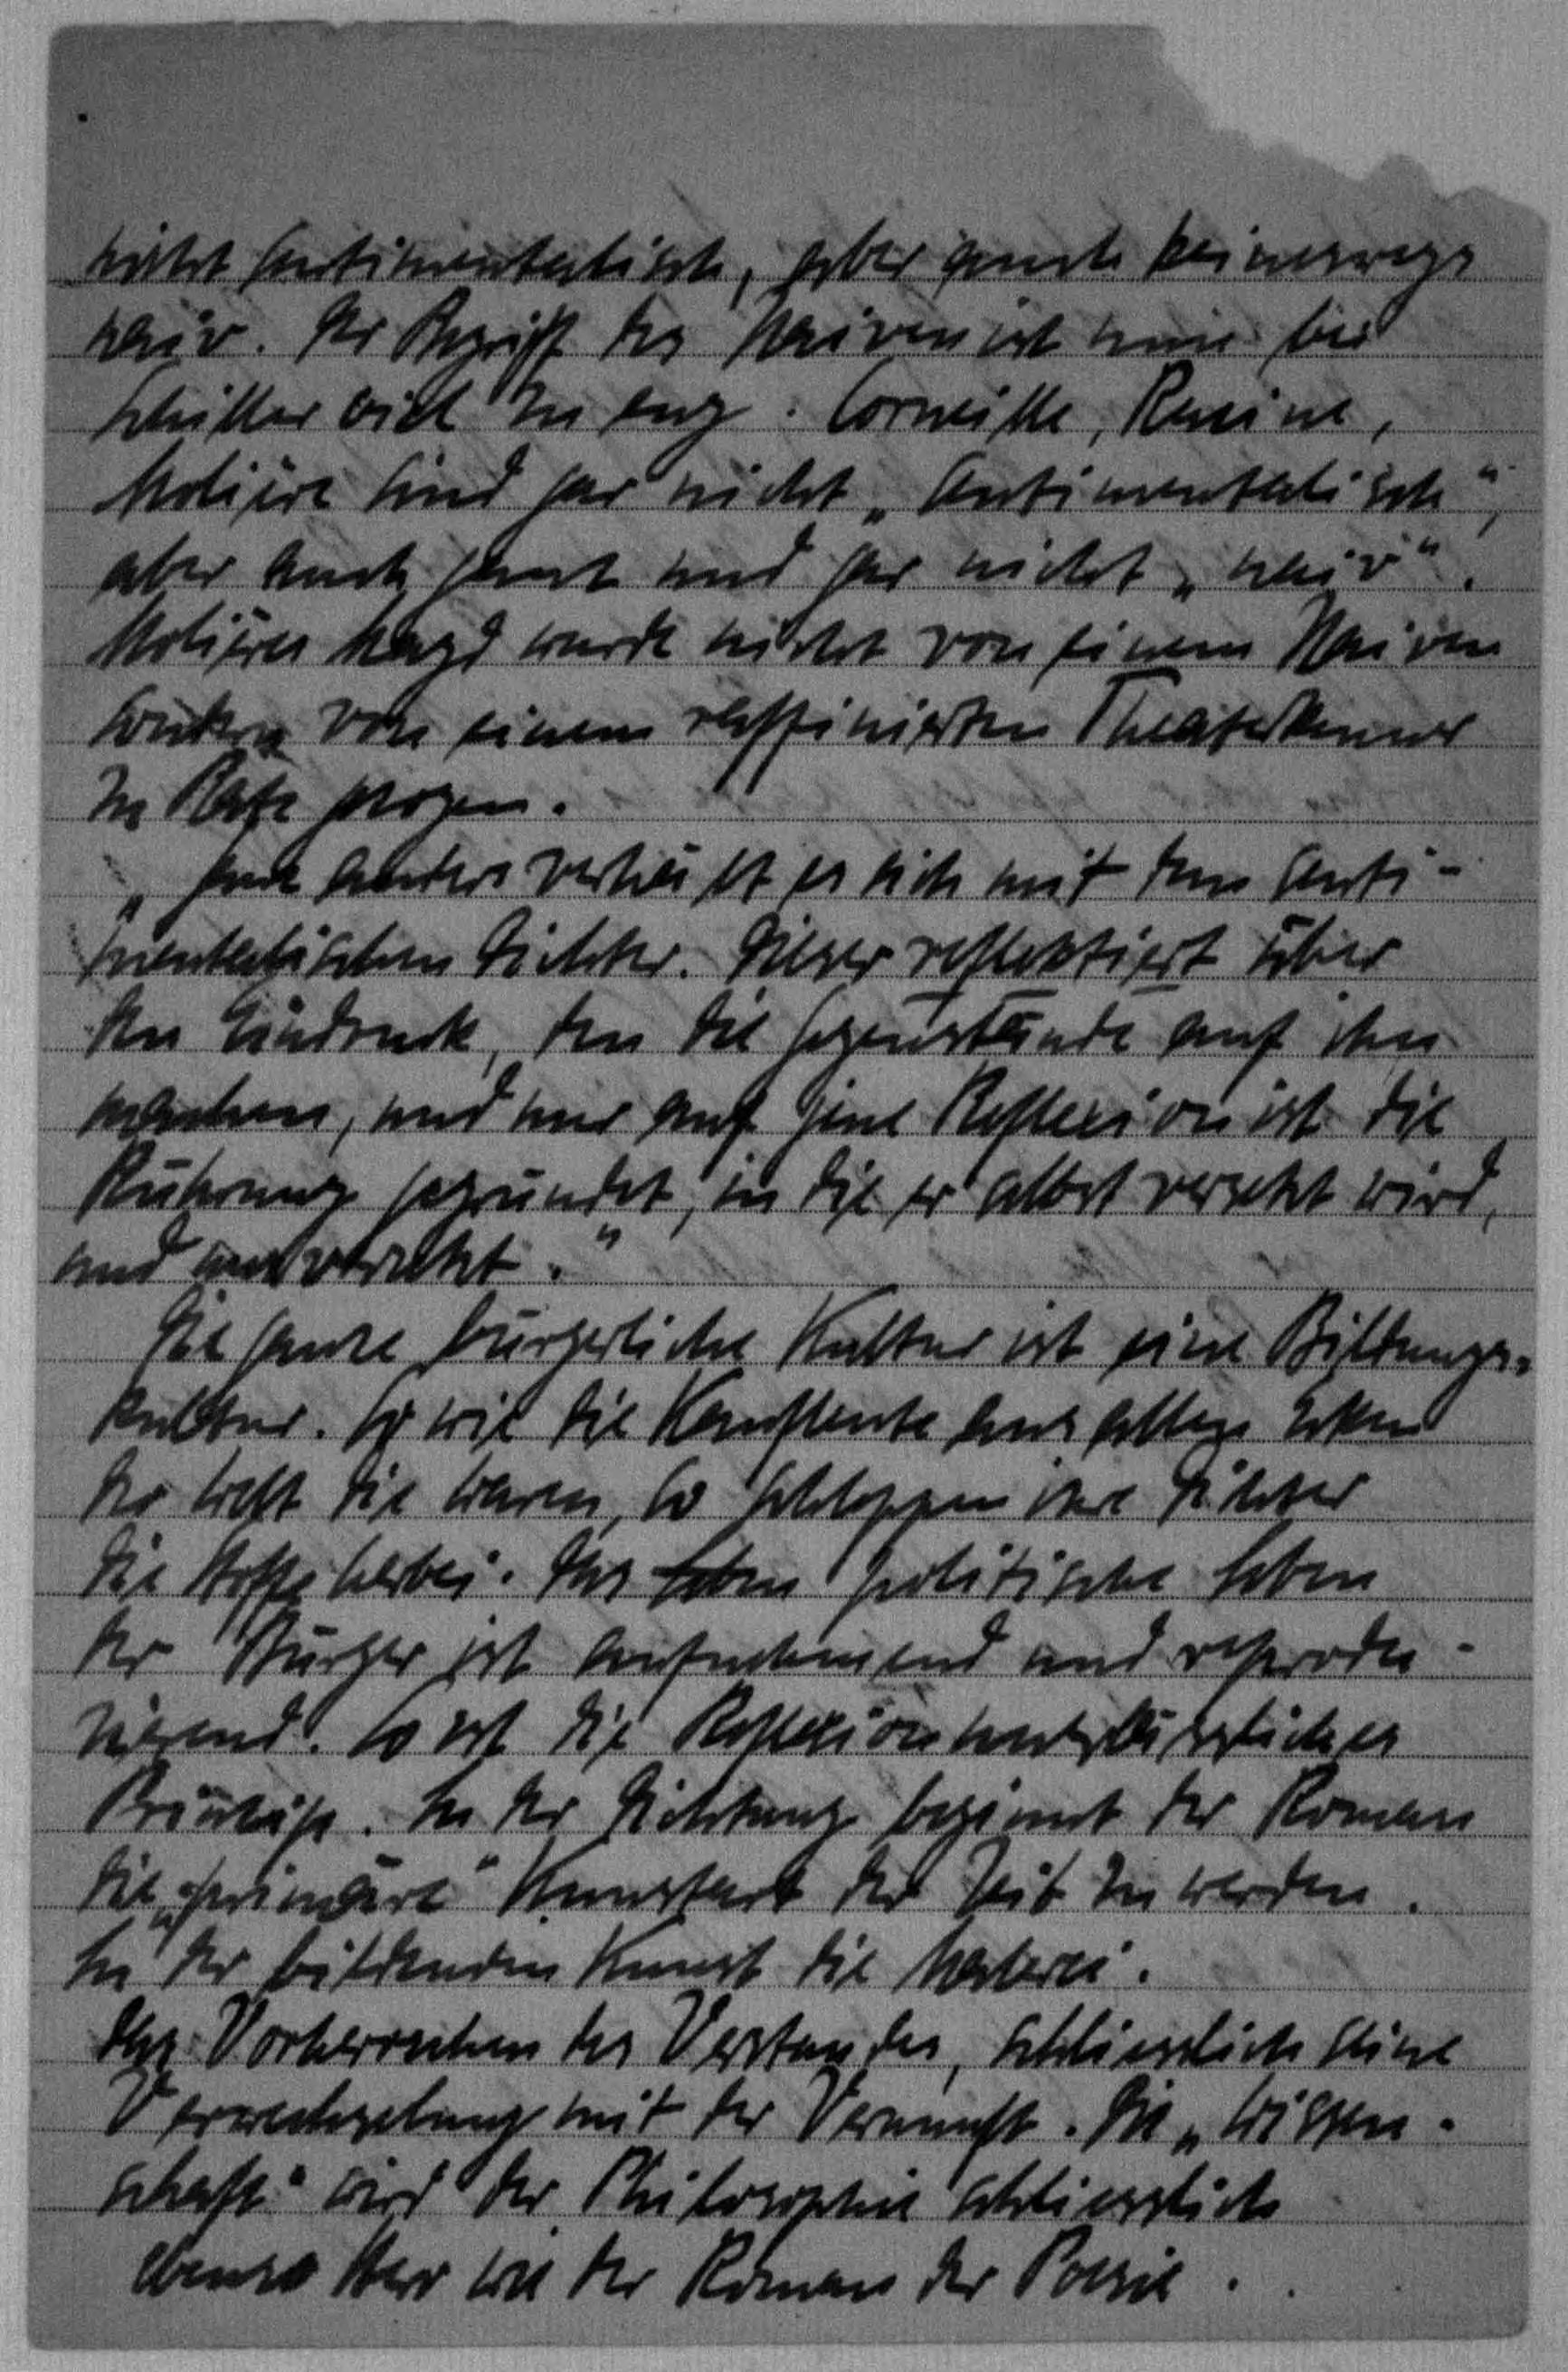 nicht sentimentalisch, aber auch keineswegs
naiv. Der Begriff des Naiven ist nun bei
Schiller viel zu eng. Corneille, Racine,
Molière sind gar nicht „sentimentalisch",
aber auch ganz und gar nicht „naiv".
Molières Magd wurde nicht von einem Naiven
sondern von einem raffinierten Theaterkenner
zu Rate gezogen.
„Ganz anders verhält es sich mit dem senti-
mentalischen Dichter. Dieser reflektiert über
den Eindruck, den die Gegenstände auf ihn
machen, und nur auf jene Reflexion ist die
Rührung gegründet, in die er selbst versetzt wird,
und uns versetzt."
Die ganze bürgerliche Kultur ist eine Bildungs-
kultur. So wie die Kaufleute aus allen Ecken
der Welt die Waren, so schleppen ihre Dichter
die Stoffe herbei. Das Leben politische Leben
der Bürger ist aufnehmend und reprodu-
zierend. So ist die Reflexion hauptsächliches
Prinzip. In der Dichtung beginnt der Roman
die „primäre" Kunstart der Zeit zu werden.
In der bildenden Kunst die Malerei.
Das Vorherrschen des Verstandes, schliesslich seine
Verwechselung mit der Vernunft. Die „Wissen-
schaft" wird der Philosophie schliesslich
ebenso Herr wie der Roman der Poesie.